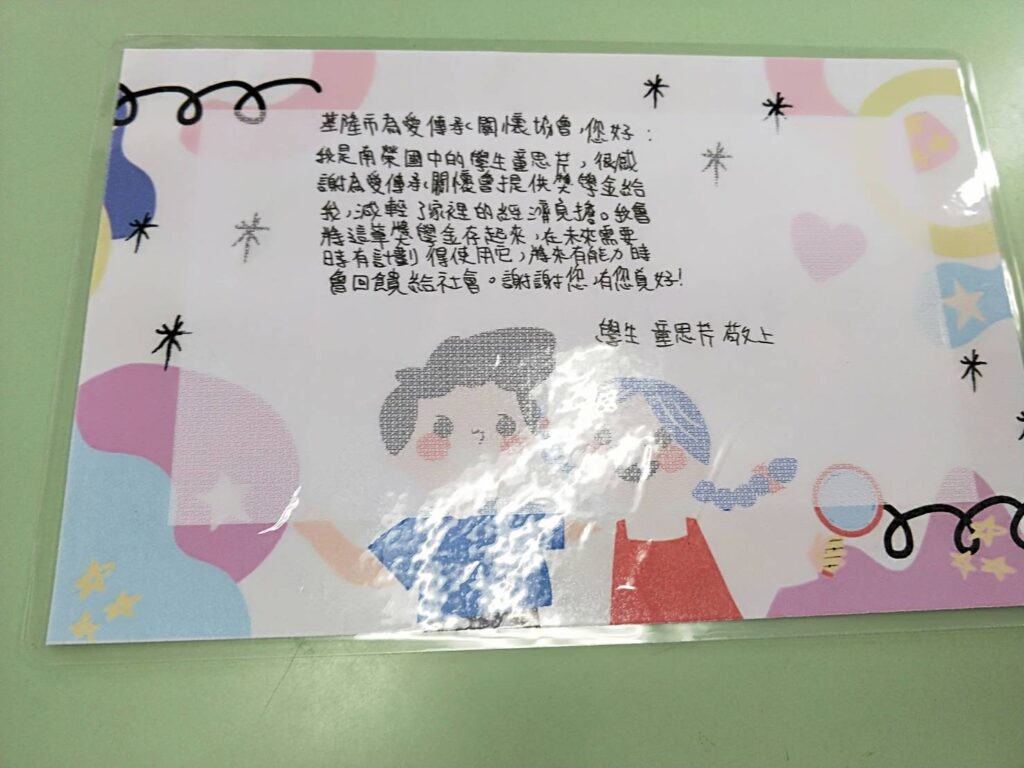 基隆市為愛傳承關懷協會,您好:
我是南榮國中的學生童思芹,很感
謝為愛傳承關懷會提供獎學金給
我,減輕了家裡的經濟負擔。我會
將這筆獎學金存起來,在未來需要
時有計劃得使用它,將來有能力時
會回饋給社會。謝謝您,有您真好!
學生 童思芹 敬上